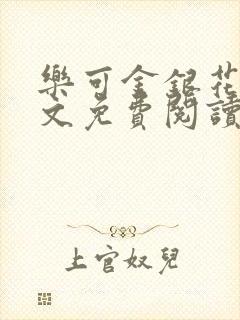 樂可金銀花
文免費閱讀
上官奴兒